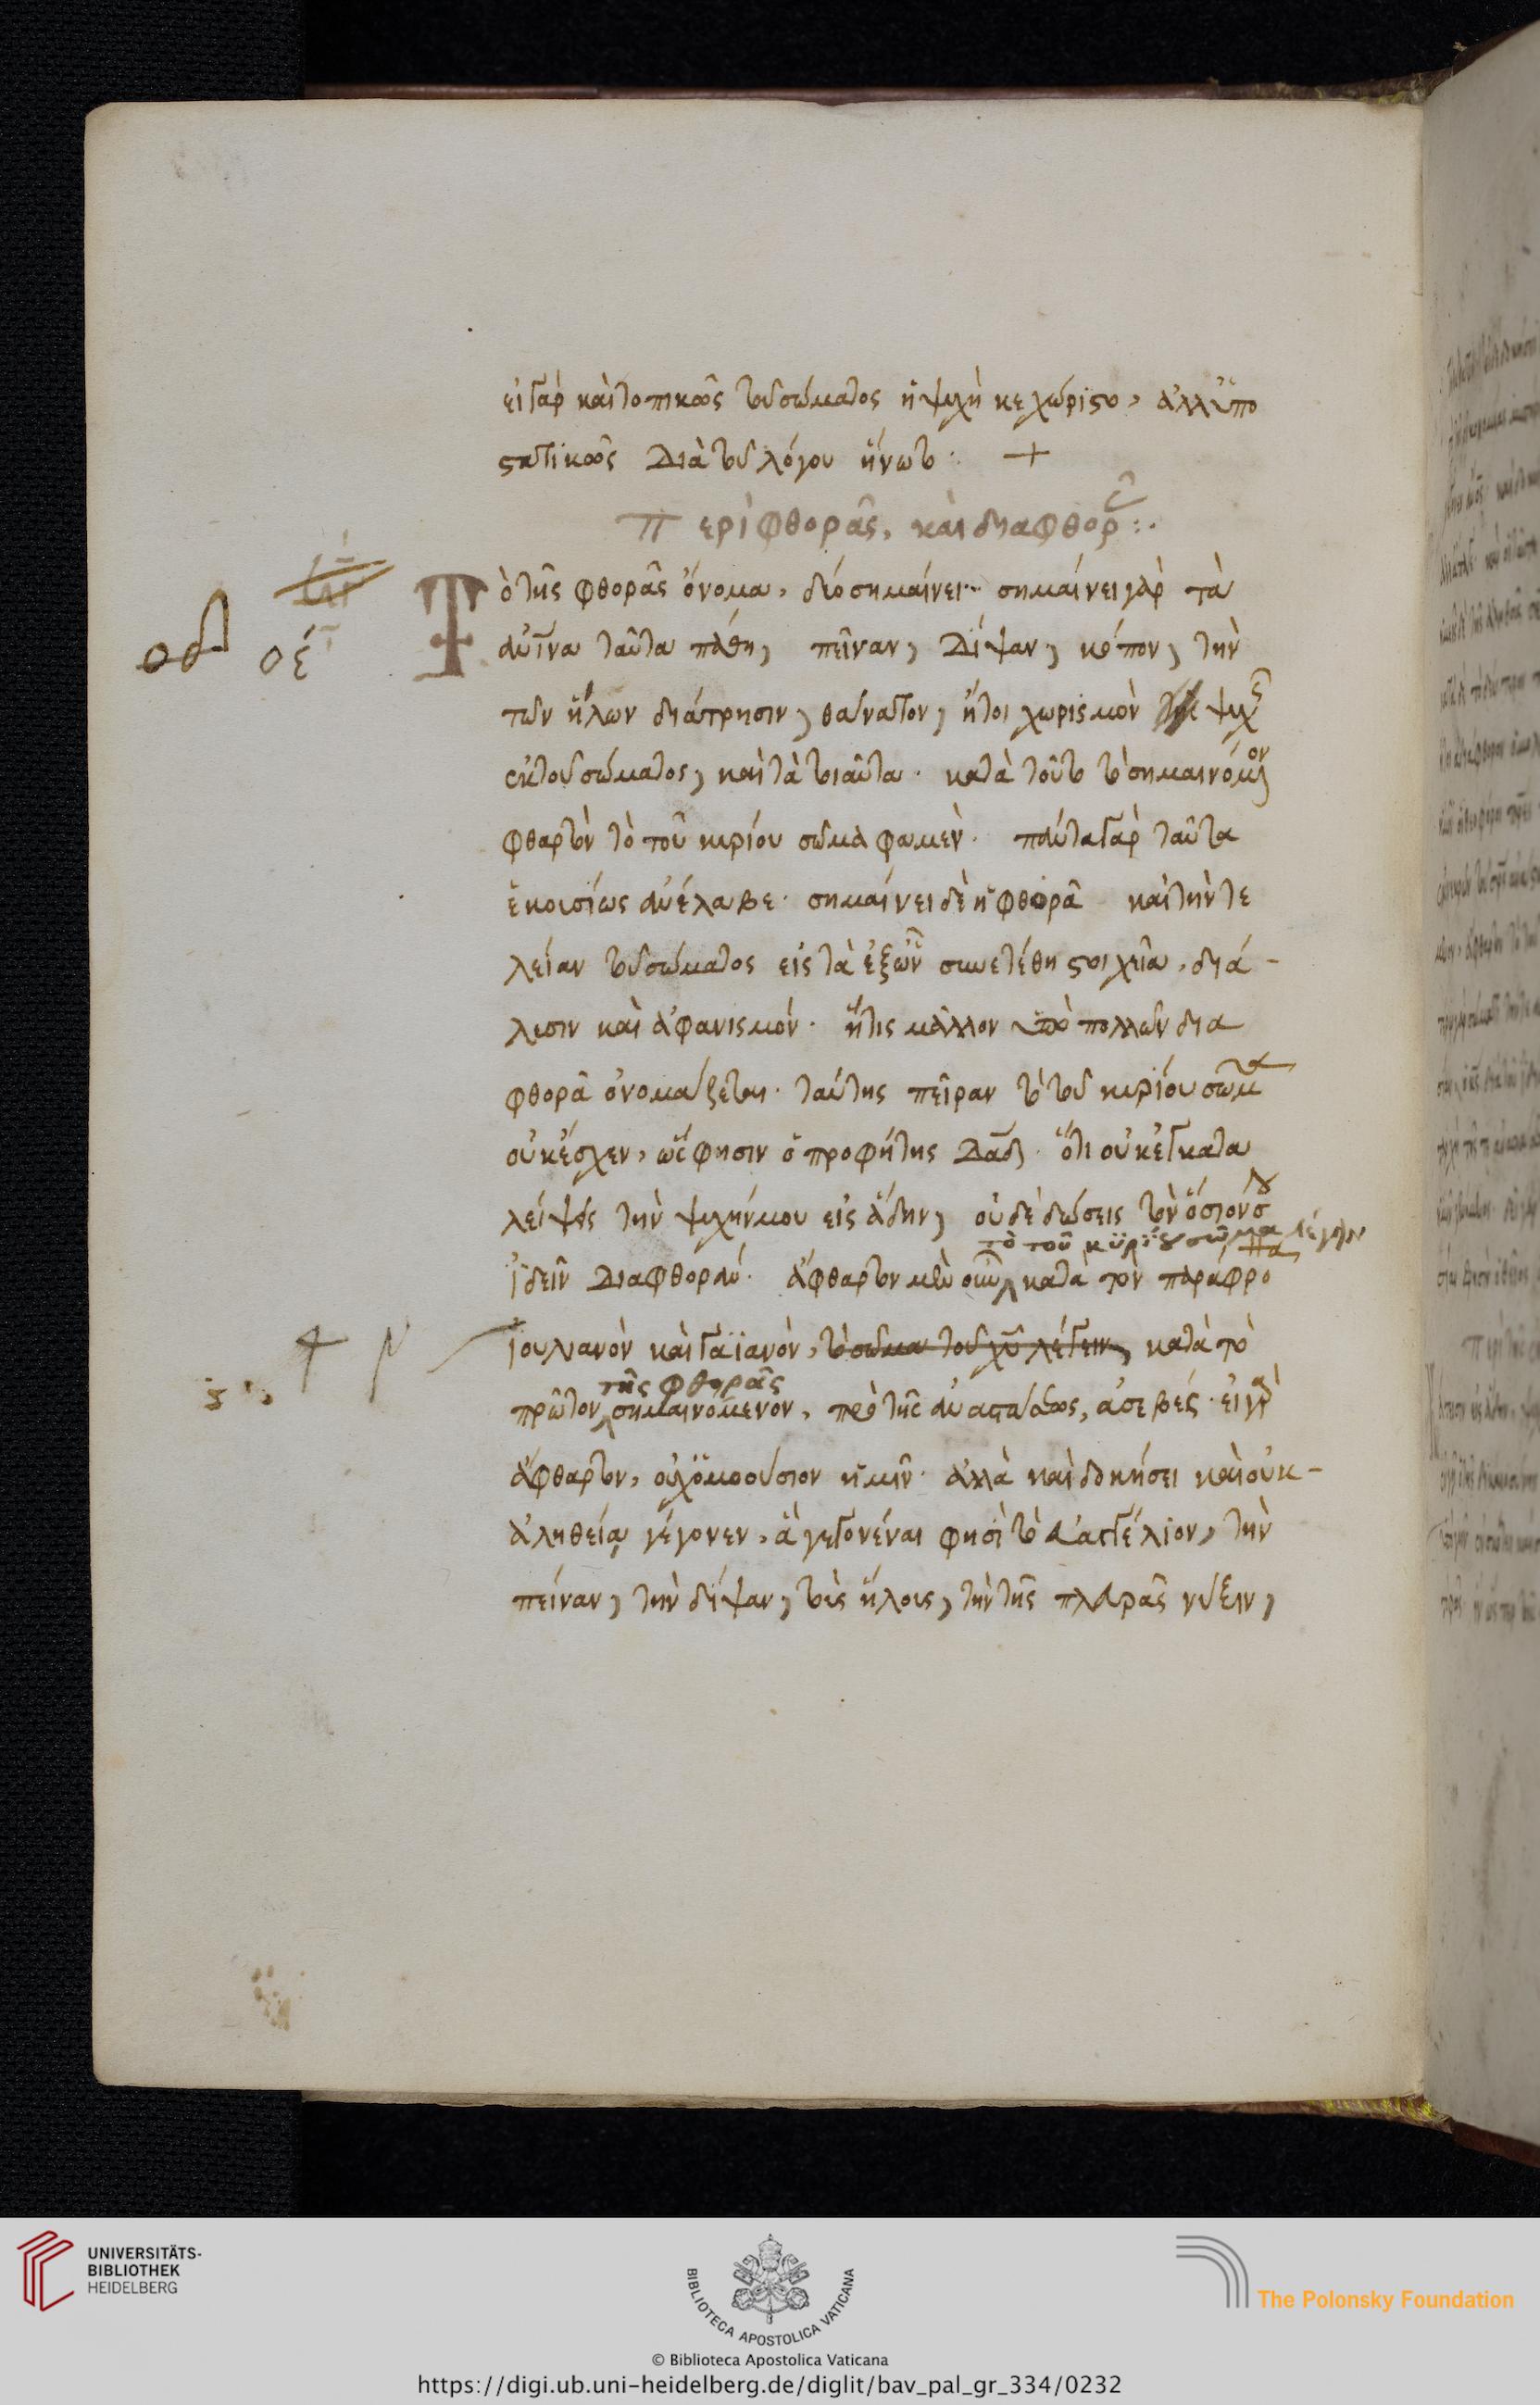 εἰ γὰρ καὶ τοπικῶς τοῦ σώματος ἡ ψυχὴ κεχώριστο, ἀλλ' ὑπο
στατικῶς διὰ τοῦ λόγου ἥνωτο· +
Περὶ φθορᾶς, καὶ διαφθορᾶς :·
Τὸ τῆς φθορᾶς ὄνομα, δύο σημαίνει· σημαίνει γὰρ τὰ
οδ οέ
ἀν̅ι̅να ταῦτα πάθη, πεῖναν, δίψαν, κόπον, τὴν
τῶν ἥλων διάτρησιν, θάνατον, ἤτοι χωρισμὸν τῆς ψυχῆς
ἐκ τοῦ σώματος, καὶ τὰ τοιαῦτα· κατὰ τοῦτο τὸ σημαινόμενον
φθαρτὸν τὸ τοῦ κυρίου σῶμα φαμὲν· πάντα γὰρ ταῦτα
ἑκουσίως ἀνέλαβε· σημαίνει δὲ ἡ φθορᾶ καὶ τὴν τε
λείαν τοῦ σώματος εἰς τὰ ἐξ ὧν συνετέθη στοιχεῖα, διά-
λυσιν καὶ ἀφανισμόν· ἥτις μᾶλλον ὑπὸ πολλῶν δια
φθορᾶ ὀνομάζεται· ταύτης πεῖραν τὸ τοῦ κυρίου σῶμα
οὐκ ἔσχεν, ὥς φησιν ὁ προφήτης Δαδ· ὅτι οὐκ ἐγκατα
λείψεις τὴν ψυχήν μου εἰς ᾅδην, οὐδὲ δώσεις τὸν ὅσιόν σου
τὸ τοῦ κυρίου σῶμα λέγειν
ἰδεῖν διαφθοράν· ἄφθαρτον μὲν οὖν κατὰ τὸν παράφρονα
Ἰουλιανὸν καὶ Γαϊανὸν, τὸ σῶμα τοῦ χυ λέγειν, κατὰ τὸ
τῆς φθορᾶς
πρῶτον σημαινόμενον, πρὸ τῆς ἀναστάσεως, ἀσεβές· εἰ γὰρ
ἄφθαρτον, οὐχ ὁμοούσιον ἡμῖν· ἀλλὰ καὶ δοκήσει καὶ οὐκ-
ἀληθείᾳ γέγονεν, ἃ γεγονέναι φησὶ τὸ εὐαγγέλιον, τὴν
πείναν, τὴν δίψαν, τοὺς ἥλους, τὴν τῆς πλευρᾶς νύξιν,
UNIVERSITÄTS-
BIBLIOTHEK
HEIDELBERG
BIBLIOTECA APOSTOLICA VATICANA
The Polonsky Foundation
© Biblioteca Apostolica Vaticana
https://digi.ub.uni-heidelberg.de/diglit/bav_pal_gr_334/0232